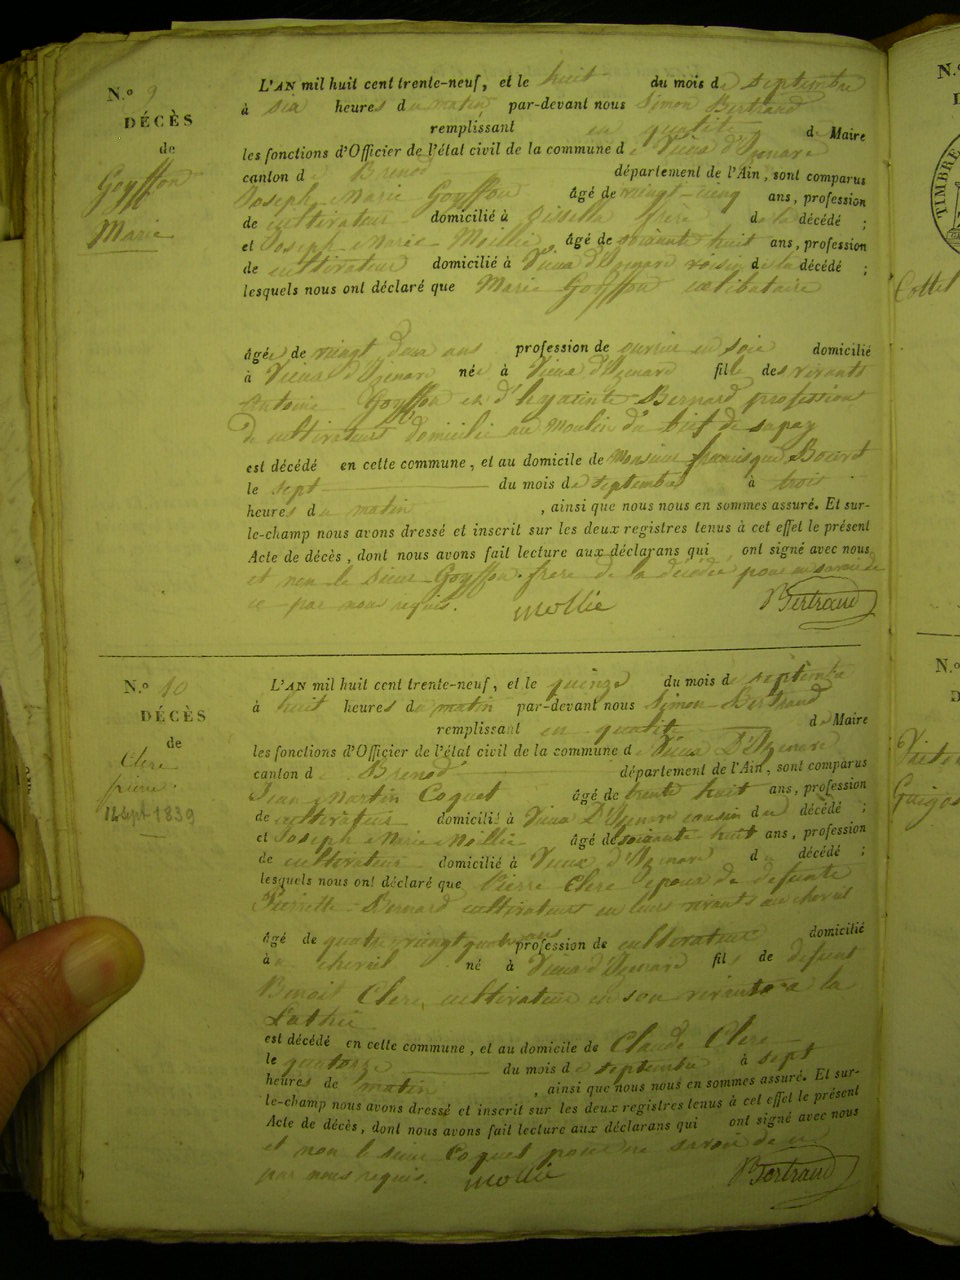 N.º 9
DÉCÈS
de
Goyffon
Marie
L'AN mil huit cent trente-neuf, et le huit du mois de septembre
à six heures du matin par-devant nous Simon Bertrand
remplissant en qualité de Maire
les fonctions d'Officier de l'état civil de la commune de Vieux d'Izenave
canton de Brenod département de l'Ain, sont comparus
Joseph Marie Goyffon âgé de vingt-cinq ans, profession
de cultivateur domicilié à frère de la décédé ;
et Joseph Marie Mollie, âgé de soixante huit ans, profession
de cultivateur domicilié à Vieux d'Izenave voisin de la décédé ;
lesquels nous ont déclaré que Marie Goyffon celibataire
âgée de vingt deux ans profession de ouvrière en soie domicilié
à Vieux d'Izenave née à Vieux d'Izenave fille des vivants
Antoine Goyffon et d'hyacinte Bernard profession
De cultivateurs domicilié au Moulin du bief de
est décédé en cette commune, et au domicile de Monsieur
le sept du mois de septembre à trois
heures du matin, ainsi que nous nous en sommes assuré. Et sur-
le-champ nous avons dressé et inscrit sur les deux registres tenus à cet effet le présent
Acte de décès, dont nous avons fait lecture aux déclarans qui ont signé avec nous
et non le sieur Goyffon frere de la décédée pour ne savoir de
ce par nous requis. Mollie Bertrand
N.º 10
DÉCÈS
de
Clerc
pierre.
14 Sept 1839
L'AN mil huit cent trente-neuf, et le quinze du mois de septembre
à huit heures du matin par-devant nous Simon Bertrand
remplissant en qualité de Maire
les fonctions d'Officier de l'état civil de la commune de Vieux D'Izenave
canton de Brenod département de l'Ain, sont comparus
Jean Martin Coquet âgé de trente huit ans, profession
de cultivateur domicilié à Vieux D'Izenave cousin du décédé ;
et Joseph Marie Mollie âgé de soixante huit ans, profession
de cultivateur domicilié à Vieux d'Izenave du décédé ;
lesquels nous ont déclaré que Pierre Clerc epoux de defunte
Pierrette Bernard cultivateurs en leurs vivants au chevril
âgé de quatre vingt quatre ans profession de cultivateur domicilié
à chevril né à Vieux d'Izenave fils de defunt
Benoit Clerc, cultivateur en son vivant a la
est décédé en cette commune, et au domicile de Claude Clerc
le quatorze du mois de septembre à sept
heures de matin, ainsi que nous nous en sommes assuré. Et sur-
le-champ nous avons dressé et inscrit sur les deux registres tenus à cet effet le présent
Acte de décès, dont nous avons fait lecture aux déclarans qui ont signé avec nous
et non le sieur Coquet pour ne savoir de ce
par nous requis. Mollie Bertrand
N.º
TIMBRE
Cottet
N.º